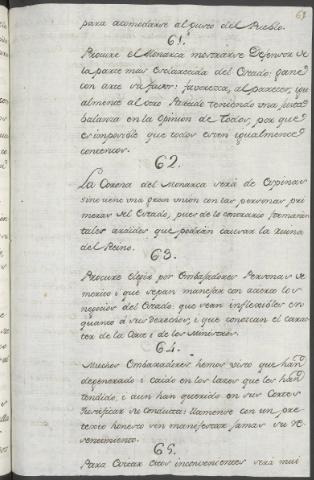 67
para acomodarse al gusto del Pueblo.
61.
Procure el Monarca mostrarse Defensor de
la parte mas esclarecida del Estado: gane
con arte su favor: favoresca, al parecer, igu
almente al otro Partido teniendo una justa
balanza en la Opinion de Todos, por que
es imposible que todos esten igualmente
contentos.
62.
La Corona del Monarca será de Espinas
sino tiene una gran union con las personas pri
meras del Estado, pues de lo contrario formarán
tales ardides que podrán causar la ruina
del Reino.
63.
Procure elegir por Embaxadores Personas de
merito i que sepan manejar con acierto los
negocios del Estado que sean inflexibles en
quanto á sus derechos, i que conoscan el carac
ter de la Corte i de los Ministros.
64.
Muchos Embaxadores hemos visto que han
degenerado i caido en los lazos que les han
tendido, i aun han querido en sus Cortes
Justificar su Conducta: llamense con un pre
texto honesto sin manifestar jamas su de
sencimiento.
65.
Para Cortar estos inconvenientes será mui